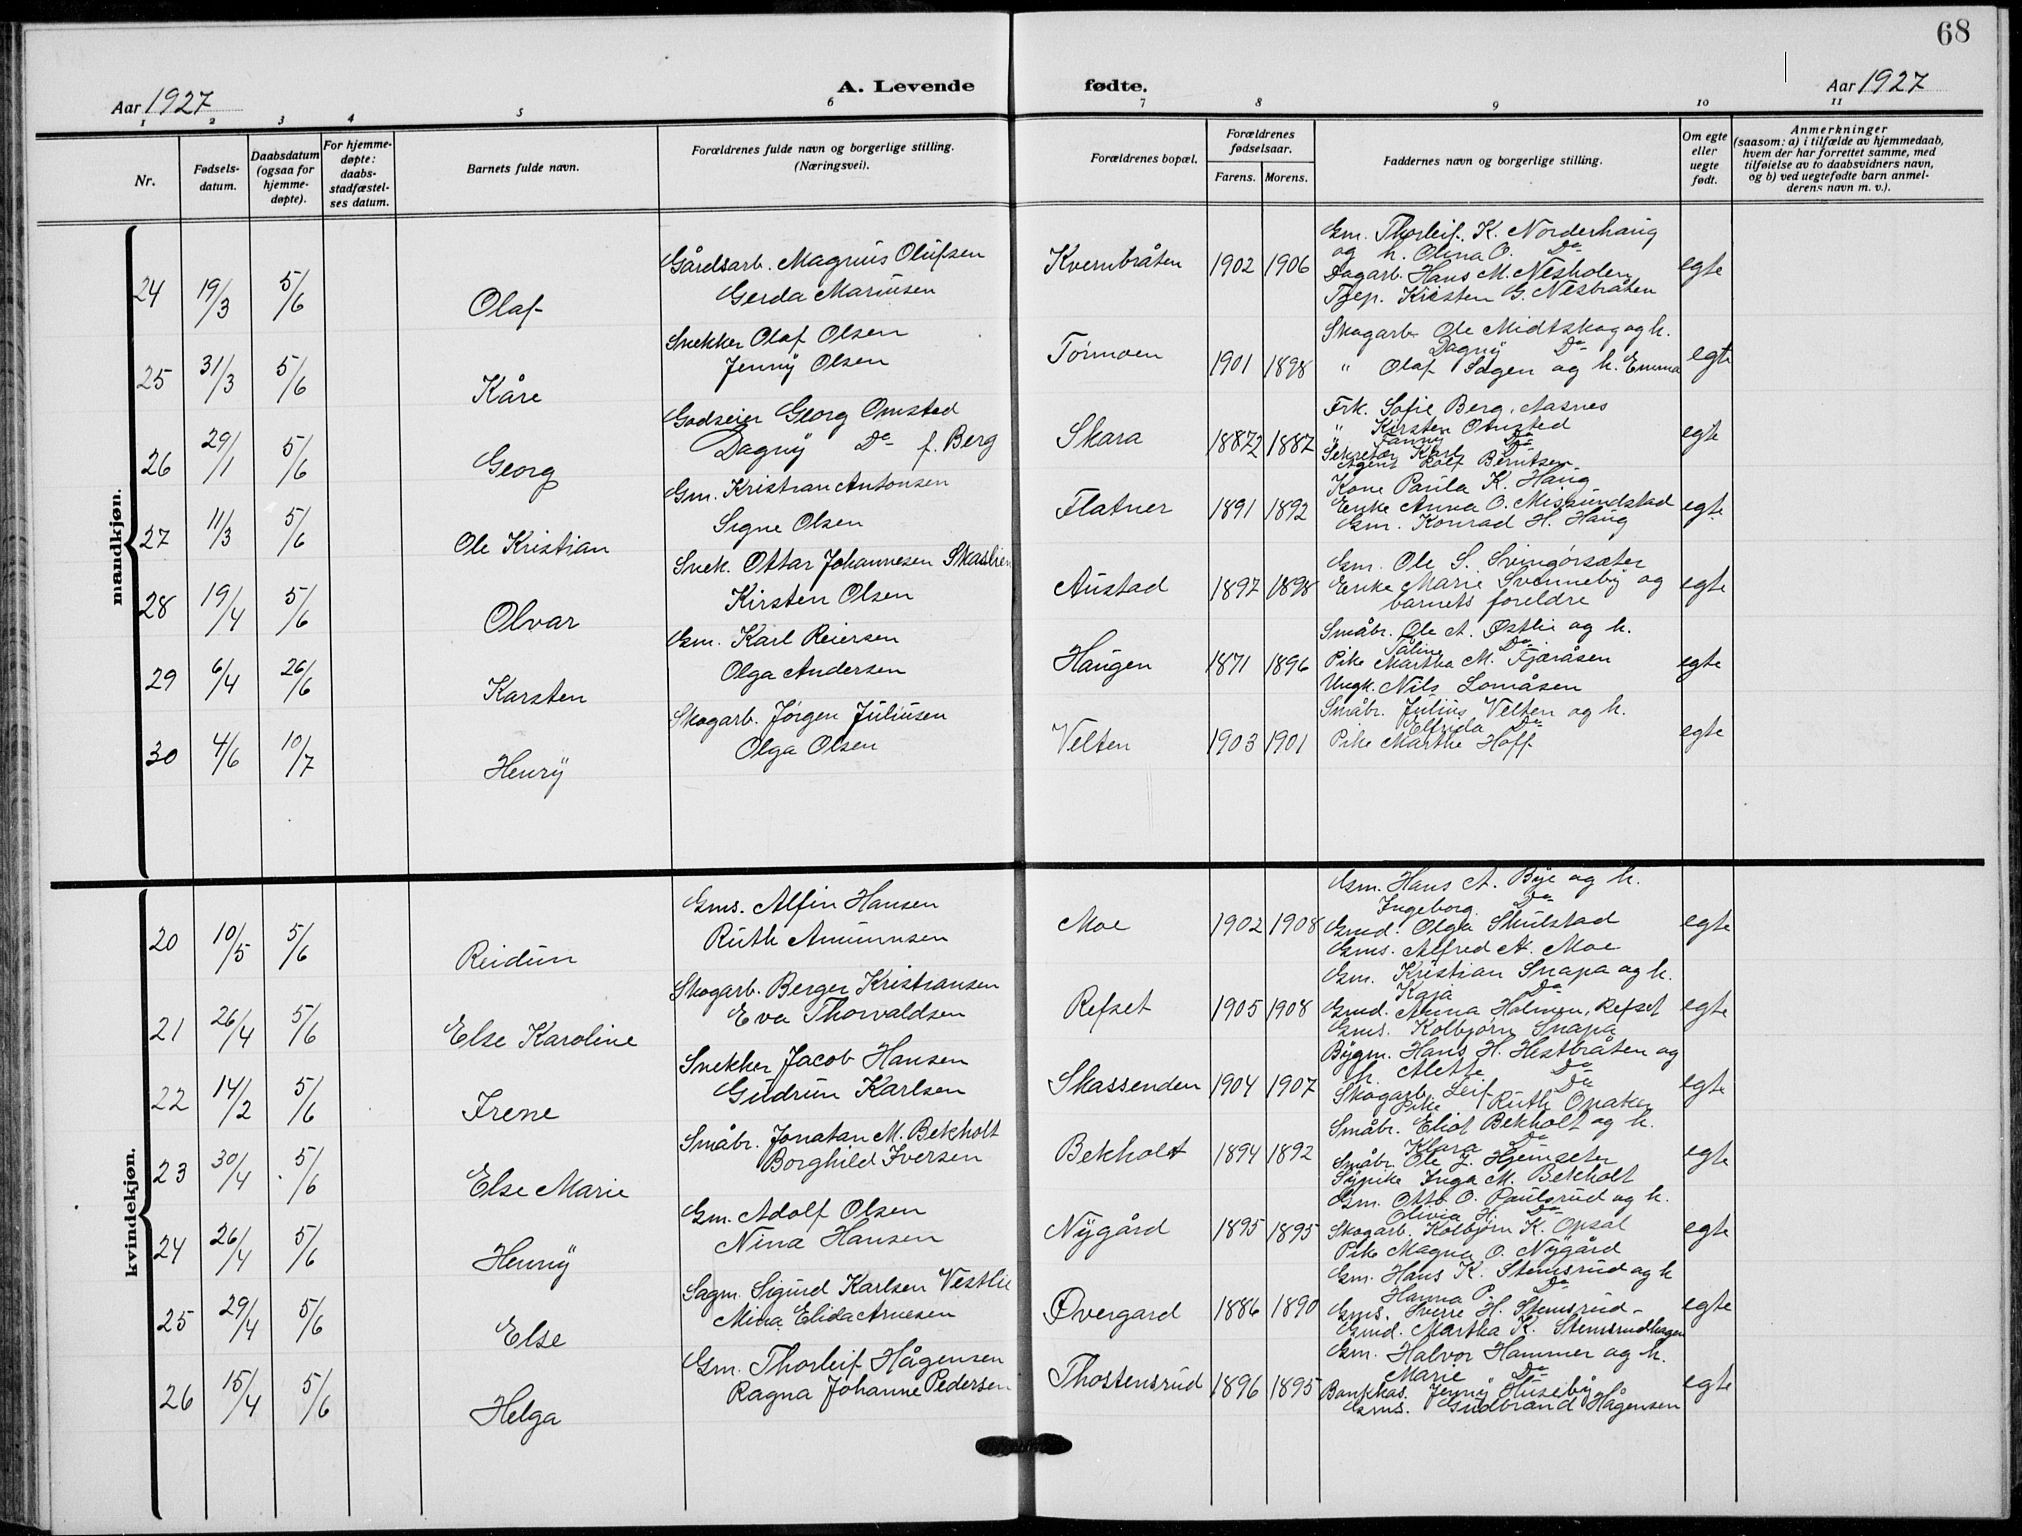 68
Aar 1927 A. Levende fødte. Aar 1927
1 2 3 4 5 6 7 8 9 10 11
Nr.
Fødsels-
datum.
Daabsdatum
(ogsaa for
hjemme-
døpte).
For hjemme-
døpte:
daabs-
stadfæstel-
ses datum.
Barnets fulde navn.
Forældrenes fulde navn og borgerlige stilling.
(Næringsvei).
Forældrenes bopæl.
Forældrenes
fødselsaar.
Farens. Morens.
Faddernes navn og borgerlige stilling.
Om egte
eller
uegte
født.
Anmerkninger
(saasom: a) i tilfælde av hjemmedaab,
hvem der har forrettet samme, med
tilføielse av to daabsvidners navn,
og b) ved uegtefødte barn anmel-
derens navn m. v.).
mandkjøn.
24 19/3 5/6 Olaf
Gårdsarb. Magnus Olufsen
Gerda Mariusen
Kvernbråten 1902 1906
Gm. Thorleif K. Norderhaug
og h. Olina O. Do
Dagarb. Hans M. Nesholen
Tjep. Kirsten G. Nesbråten
egte
25 31/3 5/6 Kåre
Snekker Olaf Olsen
Jenny Olsen
Tørmoen 1901 1898
Skogarb. Ole Midtskog og h.
Dagny Do
" Olaf Sagen og h. Emma
egte
26 29/1 5/6 Georg
Godseier Georg Omstad
Dagny Do f. Berg
Skara 18872 1887
Frk. Sofie Berg, Aasnes
" Kirsten Omsted
" Fanny Do
Sekretær Karl Do
Agent Rolf Berntsen
egte
27 11/3 5/6 Ole Kristian
Gm. Kristian Antonsen
Signe Olsen
Flatner 1891 1892
Kone Paula K. Haug
Enke Anna O. Missundstad
Gm. Konrad H. Haug
egte
28 19/4 5/6 Olvar
Snek. Ottar Johannesen Skaslien
Kirsten Olsen
Austad 1897 1898
Gm. Ole S. Svingørsæter
Enke Marie Svenneby og
barnets foreldre
egte
29 6/4 26/6 Karsten
Gm. Karl Reiersen
Olga Andersen
Haugen 1871 1896
Småbr. Ole A. Østlie og h.
Taline Do
Pike Martha M. Fjæråsen
Ungk. Nils Lomåsen
egte
30 4/6 10/7 Henry
Skogarb. Jørgen Juliusen
Olga Olsen
Velten 1903 1901
Småbr. Julius Velten og h.
Elfrida Do
Pike Marthe Hoff
egte
kvindekjøn.
20 10/5 5/6 Reidun
Gms. Alfin Hansen
Ruth Amundsen
Moe 1902 1908
Gm. Hans A. Bye og h.
Ingeborg Do
Gmd. Olga Skulstad
Gms. Alfred A. Moe
egte
21 26/4 5/6 Else Karoline
Skogarb. Berger Kristiansen
Eva Thorvaldsen
Refset 1905 1908
Gm. Kristian Snapa og h.
Kaja Do
Gmd. Anna Holmen, Refset
Gms. Kolbjørn Snapa
egte
22 14/2 5/6 Irene
Snekker Jacob Hansen
Gudrun Karlsen
Skassenden 1904 1907
Bygm. Hans H. Hestbråten og
h. Alette Do
Skogarb. Leif Do
Pike Ruth Opaker
egte
23 30/4 5/6 Else Marie
Småbr. Jonatan M. Bekholt
Borghild Iversen
Bekholt 1894 1892
Småbr. Eliot Bekholt og h.
Klara Do
Småbr. Ole J. Hjemseter
Sypike Inga M. Bekholt
egte
24 26/4 5/6 Henny
Gm. Adolf Olsen
Nina Hansen
Nygård 1895 1895
Gm. Otto O. Paulsrud og h.
Olivia H. Do
Skogarb. Kolbjørn K. Opsal
Pike Magna O. Nygård
egte
25 29/4 5/6 Else
Sagm. Sigurd Karlsen Vestlie
Mina Elida Arnesen
Øvergard 1886 1890
Gm. Hans K. Stemsrud og h
Hanna P. Do
Gms. Sverre H. Stemsrud
Gmd. Martha K. Stemsrudhagen
egte
26 15/4 5/6 Helga
Gm. Thorleif Hågensen
Ragna Johanne Pedersen
Thostensrud 1896 1895
Gm. Halvor Hammer og h.
Marie Do
Bankkas. Jenny Huseby
Gms. Gudbrand Hågensen
egte